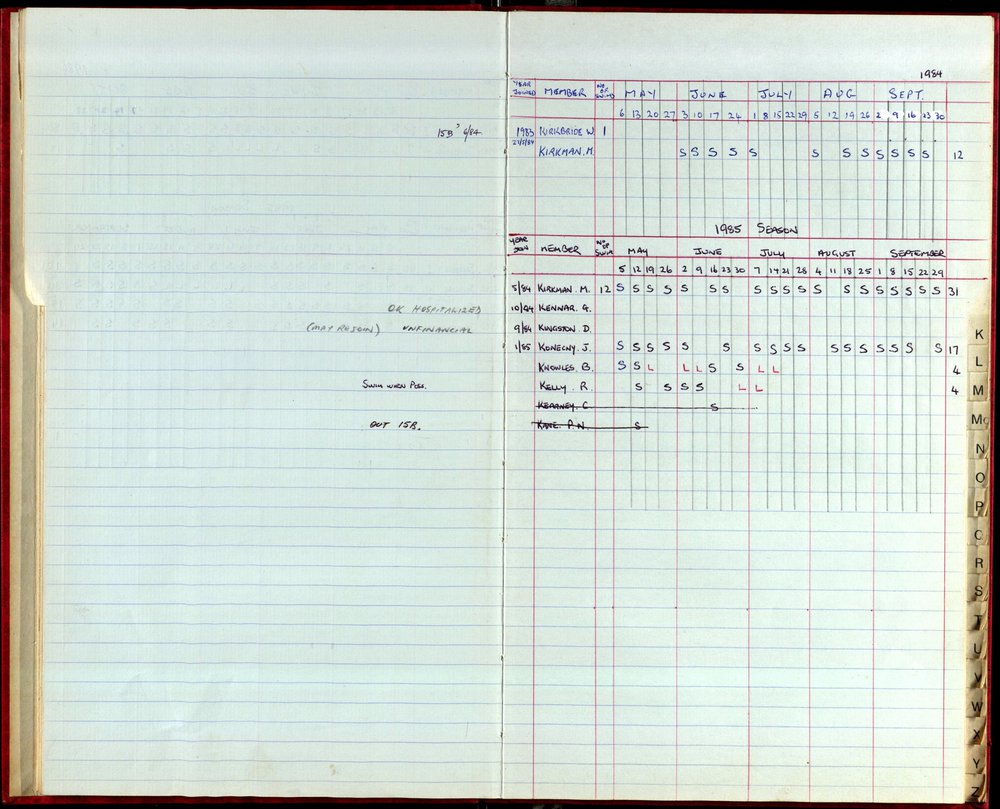 1984
YEAR JOINED MEMBER NO OF SWIMS MAY JUNE JULY AUG SEPT.
6 13 20 27 3 10 17 24 1 8 15 22 29 5 12 19 26 2 9 16 23 30
15B 6/84 1983 KIRKBRIDE W 1
21/5/84 KIRKMAN. M. S S S S S S S S S S S S 12
1985 SEASON
YEAR JOIN MEMBER NO OF SWIM MAY JUNE JULY AUGUST SEPTEMBER
5 12 19 26 2 9 16 23 30 7 14 21 28 4 11 18 25 1 8 15 22 29
5/84 KIRKMAN. M. 12 S S S S S S S S S S S S S S S S S S S 31
OK HOSPITALIZED 10/84 KENNAR. G.
(MAY REJOIN) UNFINANCIAL 9/84 KINGSTON. D.
1/85 KONECNY. J. S S S S S S S S S S S S S S S S S 17
KNOWLES. B. S S L L L S S L L 4
SWIM WHEN POSS. KELLY. R. S S S S L L 4
KEARNEY. C S
OUT 15B. KANE. P. N. S
K
L
M
Mc
N
O
P
Q
R
S
T
U
V
W
X
Y
Z